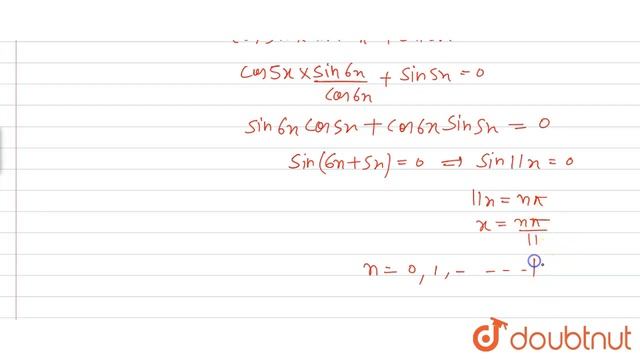 cos5x × sin6x/cos6x + sin5x = 0
sin6x cos5x + cos6x sin5x = 0
sin(6x+5x) = 0 ⇒ sin11x = 0
11x = nπ
x = nπ/11
n = 0, 1, - - - - 1
doubtnut